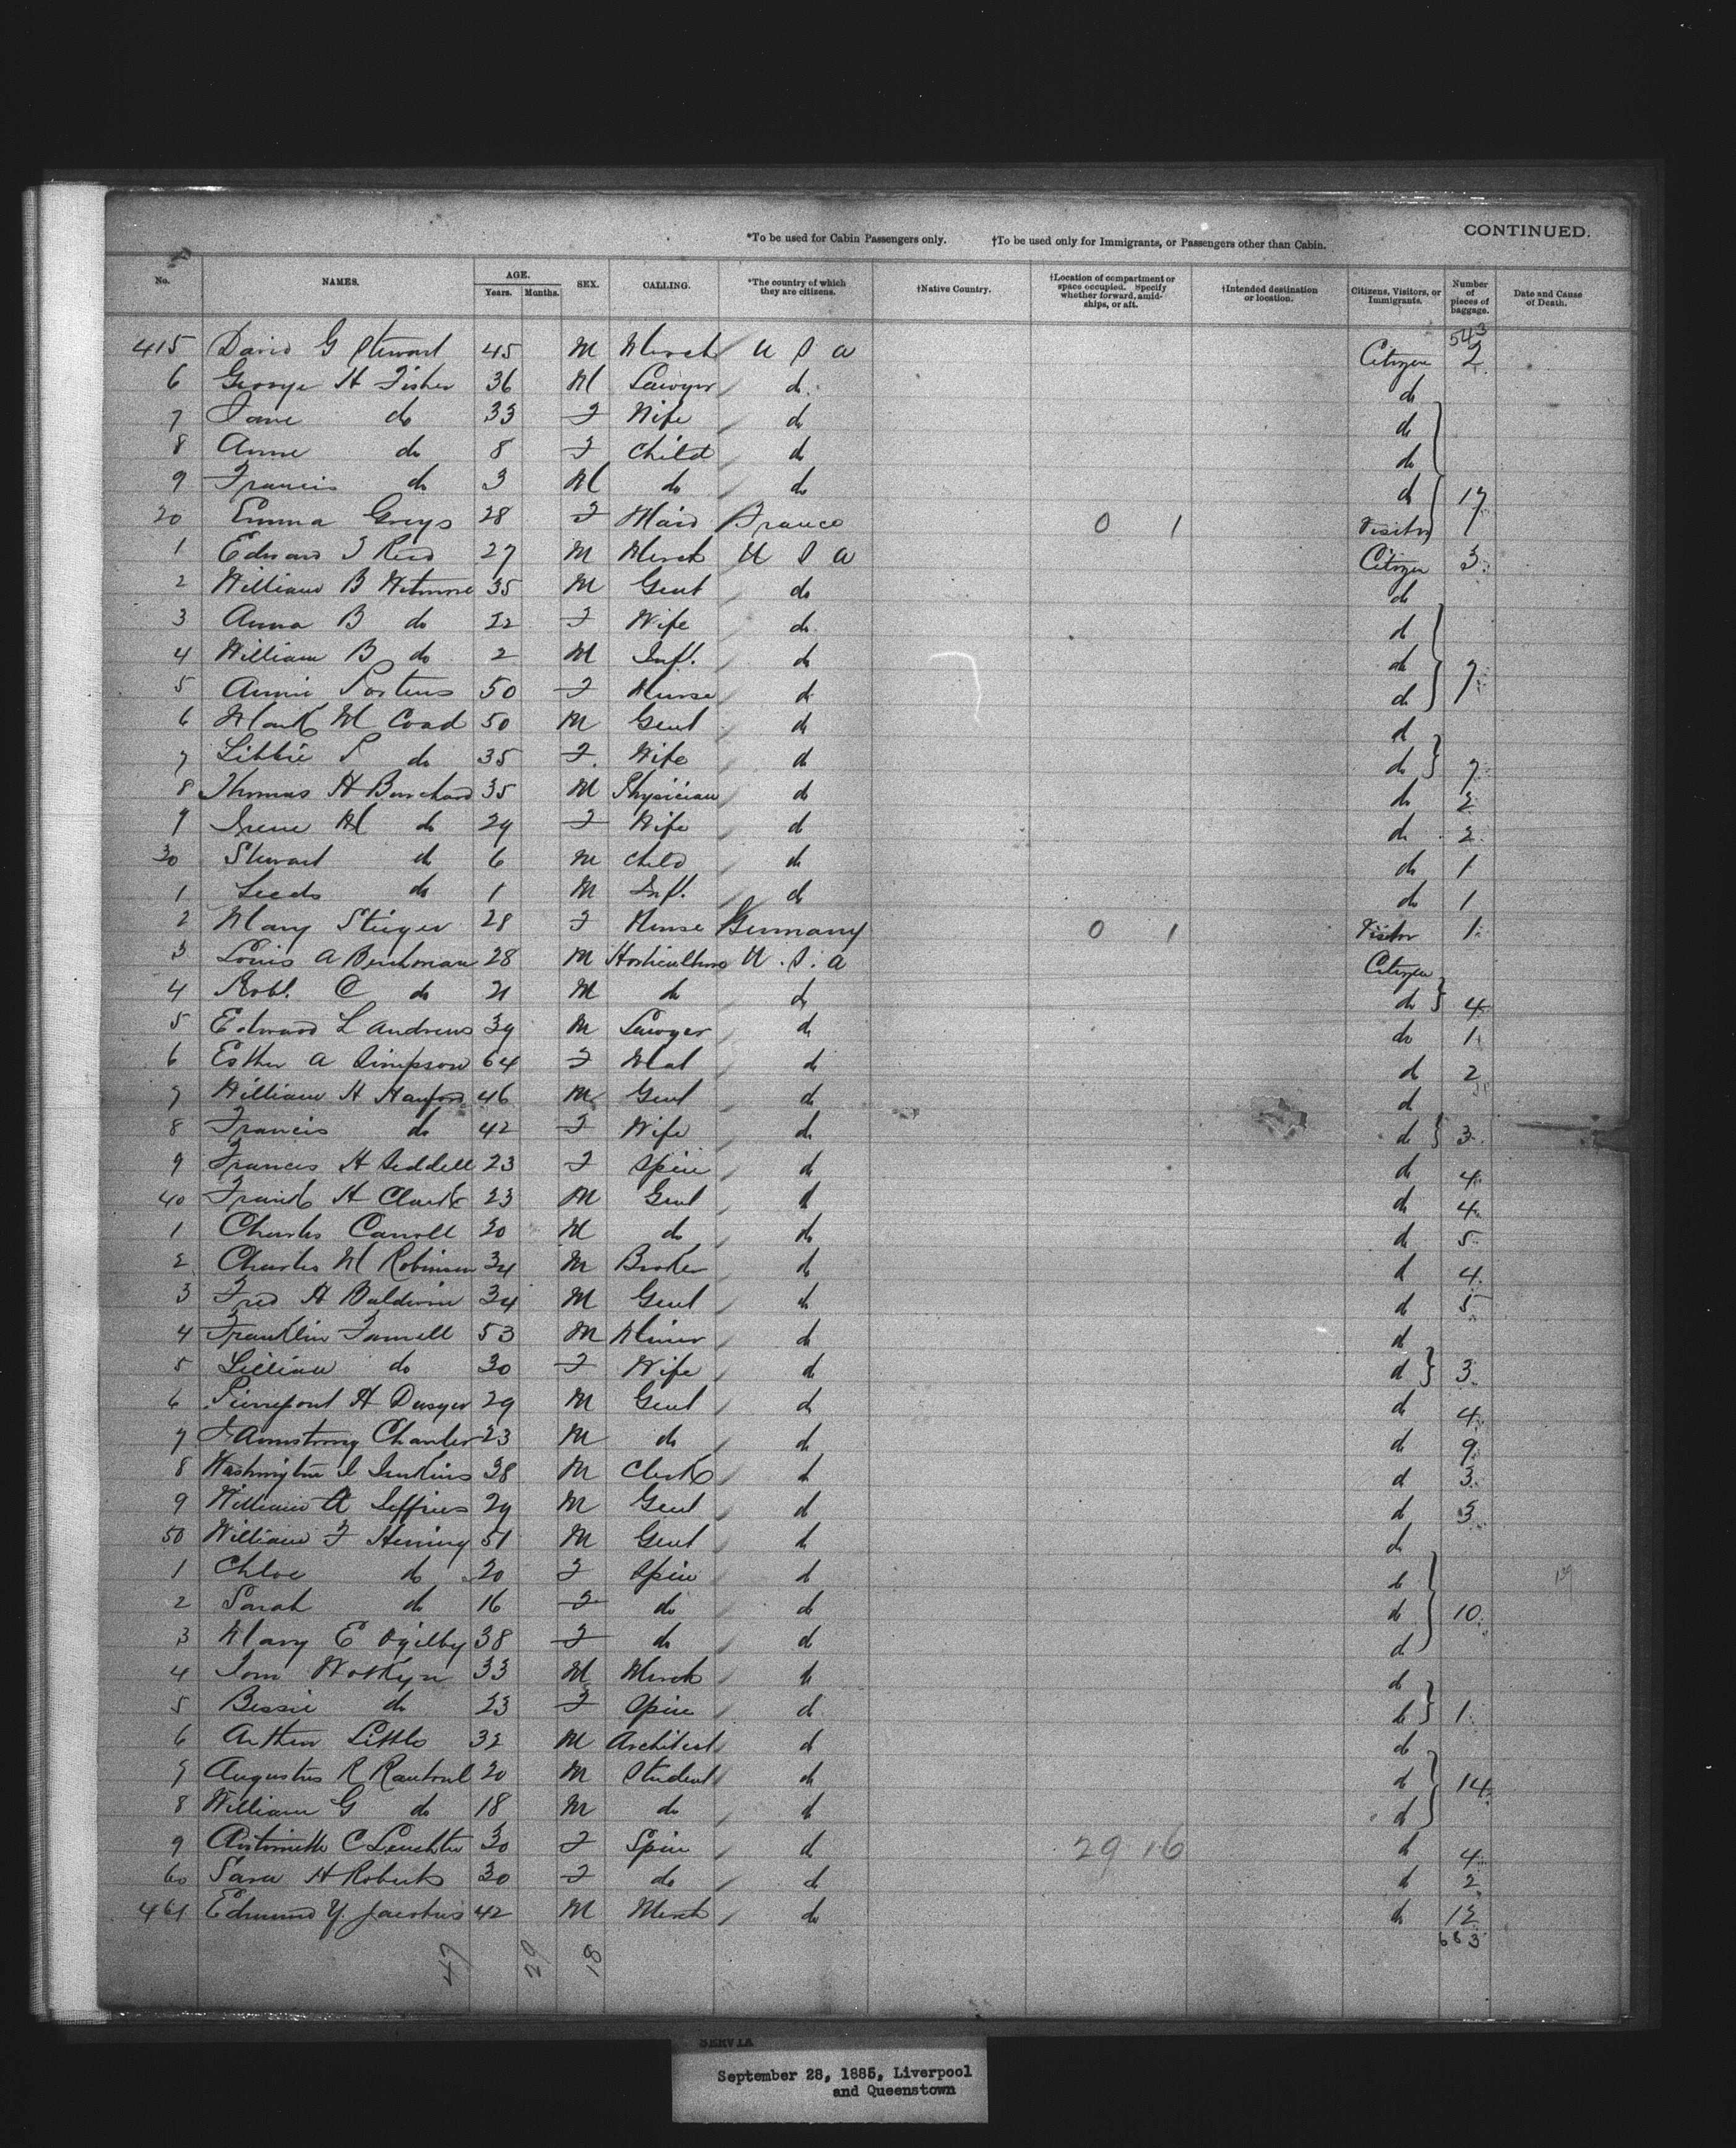 CONTINUED.
*To be used for Cabin Passengers only. †To be used only for Immigrants, or Passengers other than Cabin.
No. NAMES. AGE. Years. Months. SEX. CALLING. *The country of which they are citizens. †Native Country. †Location of compartment or space occupied. Specify whether forward, amidships, or aft. †Intended destination or location. Citizens, Visitors, or Immigrants. Number of pieces of baggage. Date and Cause of Death.
543
415 David G Stewart 45 M Merch U S A Citizen 2
6 George H Fisher 36 M Lawyer do do
7 Jane do 33 F Wife do do
8 Anne do 8 F Child do do
9 Francis do 3 M do do do 17
20 Emma Greys 28 F Maid France 0 1 Visitor 1
1 Edward J Reid 27 M Merch U S A Citizen 3
2 William B Wetmore 35 M Gent do do
3 Anna B do 22 F Wife do do
4 William B do 2 M Inft. do do 7
5 Annie Porteus 50 F Nurse do do
6 Mark M Coad 50 M Gent do do
7 Libbie S do 35 F Wife do do 7
8 Thomas H Burchard 35 M Physician do do 2
9 Irene M do 29 F Wife do do 2
30 Stewart do 6 M Child do do 1
1 Leeds do 1 M Inft. do do 1
2 Mary Steiger 28 F Nurse Germany 0 1 Visitor 1
3 Louis A 28 M U.S.A Citizen
4 Robt. C do 21 M do do do 4
5 Edward L Andrews 39 M Lawyer do do 1
6 Esther A Simpson 64 F Mat do do 2
7 William H Hanford 46 M Gent do do
8 Francis do 42 F Wife do do 3
9 Frances H Siddell 23 F Spin do do 4
40 Frank H Clark 23 M Gent do do 4
1 Charles Carroll 20 M do do do 5
2 Charles M Robinson 34 M Broker do do 4
3 Fred H Baldwin 34 M Gent do do 5
4 Franklin Farrell 53 M Miner do do
5 Lillian do 30 F Wife do do 3
6 Pierrepont H 29 M Gent do do 4
7 J Armstrong Chanler 23 M do do do 9
8 Washington I Jenkins 38 M Clerk do do 3
9 William A Jeffries 29 M Gent do do 3
50 William F Hening 51 M Gent do do
1 Chloe do 20 F Spin do do
2 Sarah do 16 F do do do 10
3 Mary E Ogilby 38 F do do do
4 Tom 33 M Merch do do
5 Bessie do 23 F Spin do do 1
6 Arthur Little 32 M Architect do do
7 Augustus R Rantoul 20 M Student do do 14
8 William G do 18 M do do do
9 Antoinette C 30 F Spin do 29 16 do 4
60 Sara H Roberts 30 F do do do 2
461 Edmund Y. Jacobus 42 M Merch do do 12
683
47 29 18
SERVIA
September 28, 1885, Liverpool
and Queenstown